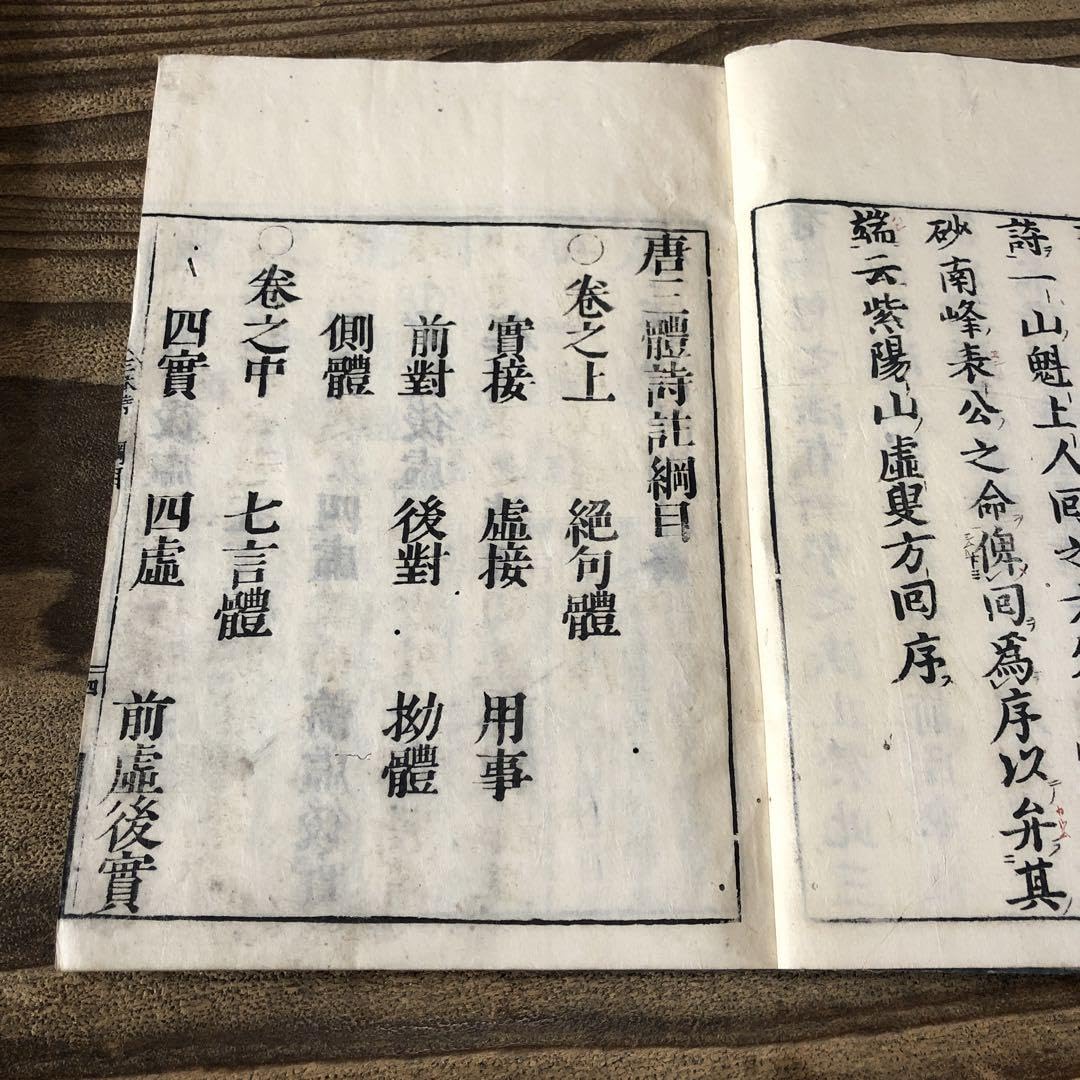 詩一山魁上人回之
砂南峰袁公之命俾回爲序以弁其
端云紫陽山虛叟方回序
唐三體詩註綱目
〇卷之上 絕句體
實接 虛接 用事
前對 後對 拗體
側體
〇卷之中 七言體
四實 四虛 前虛後實
四